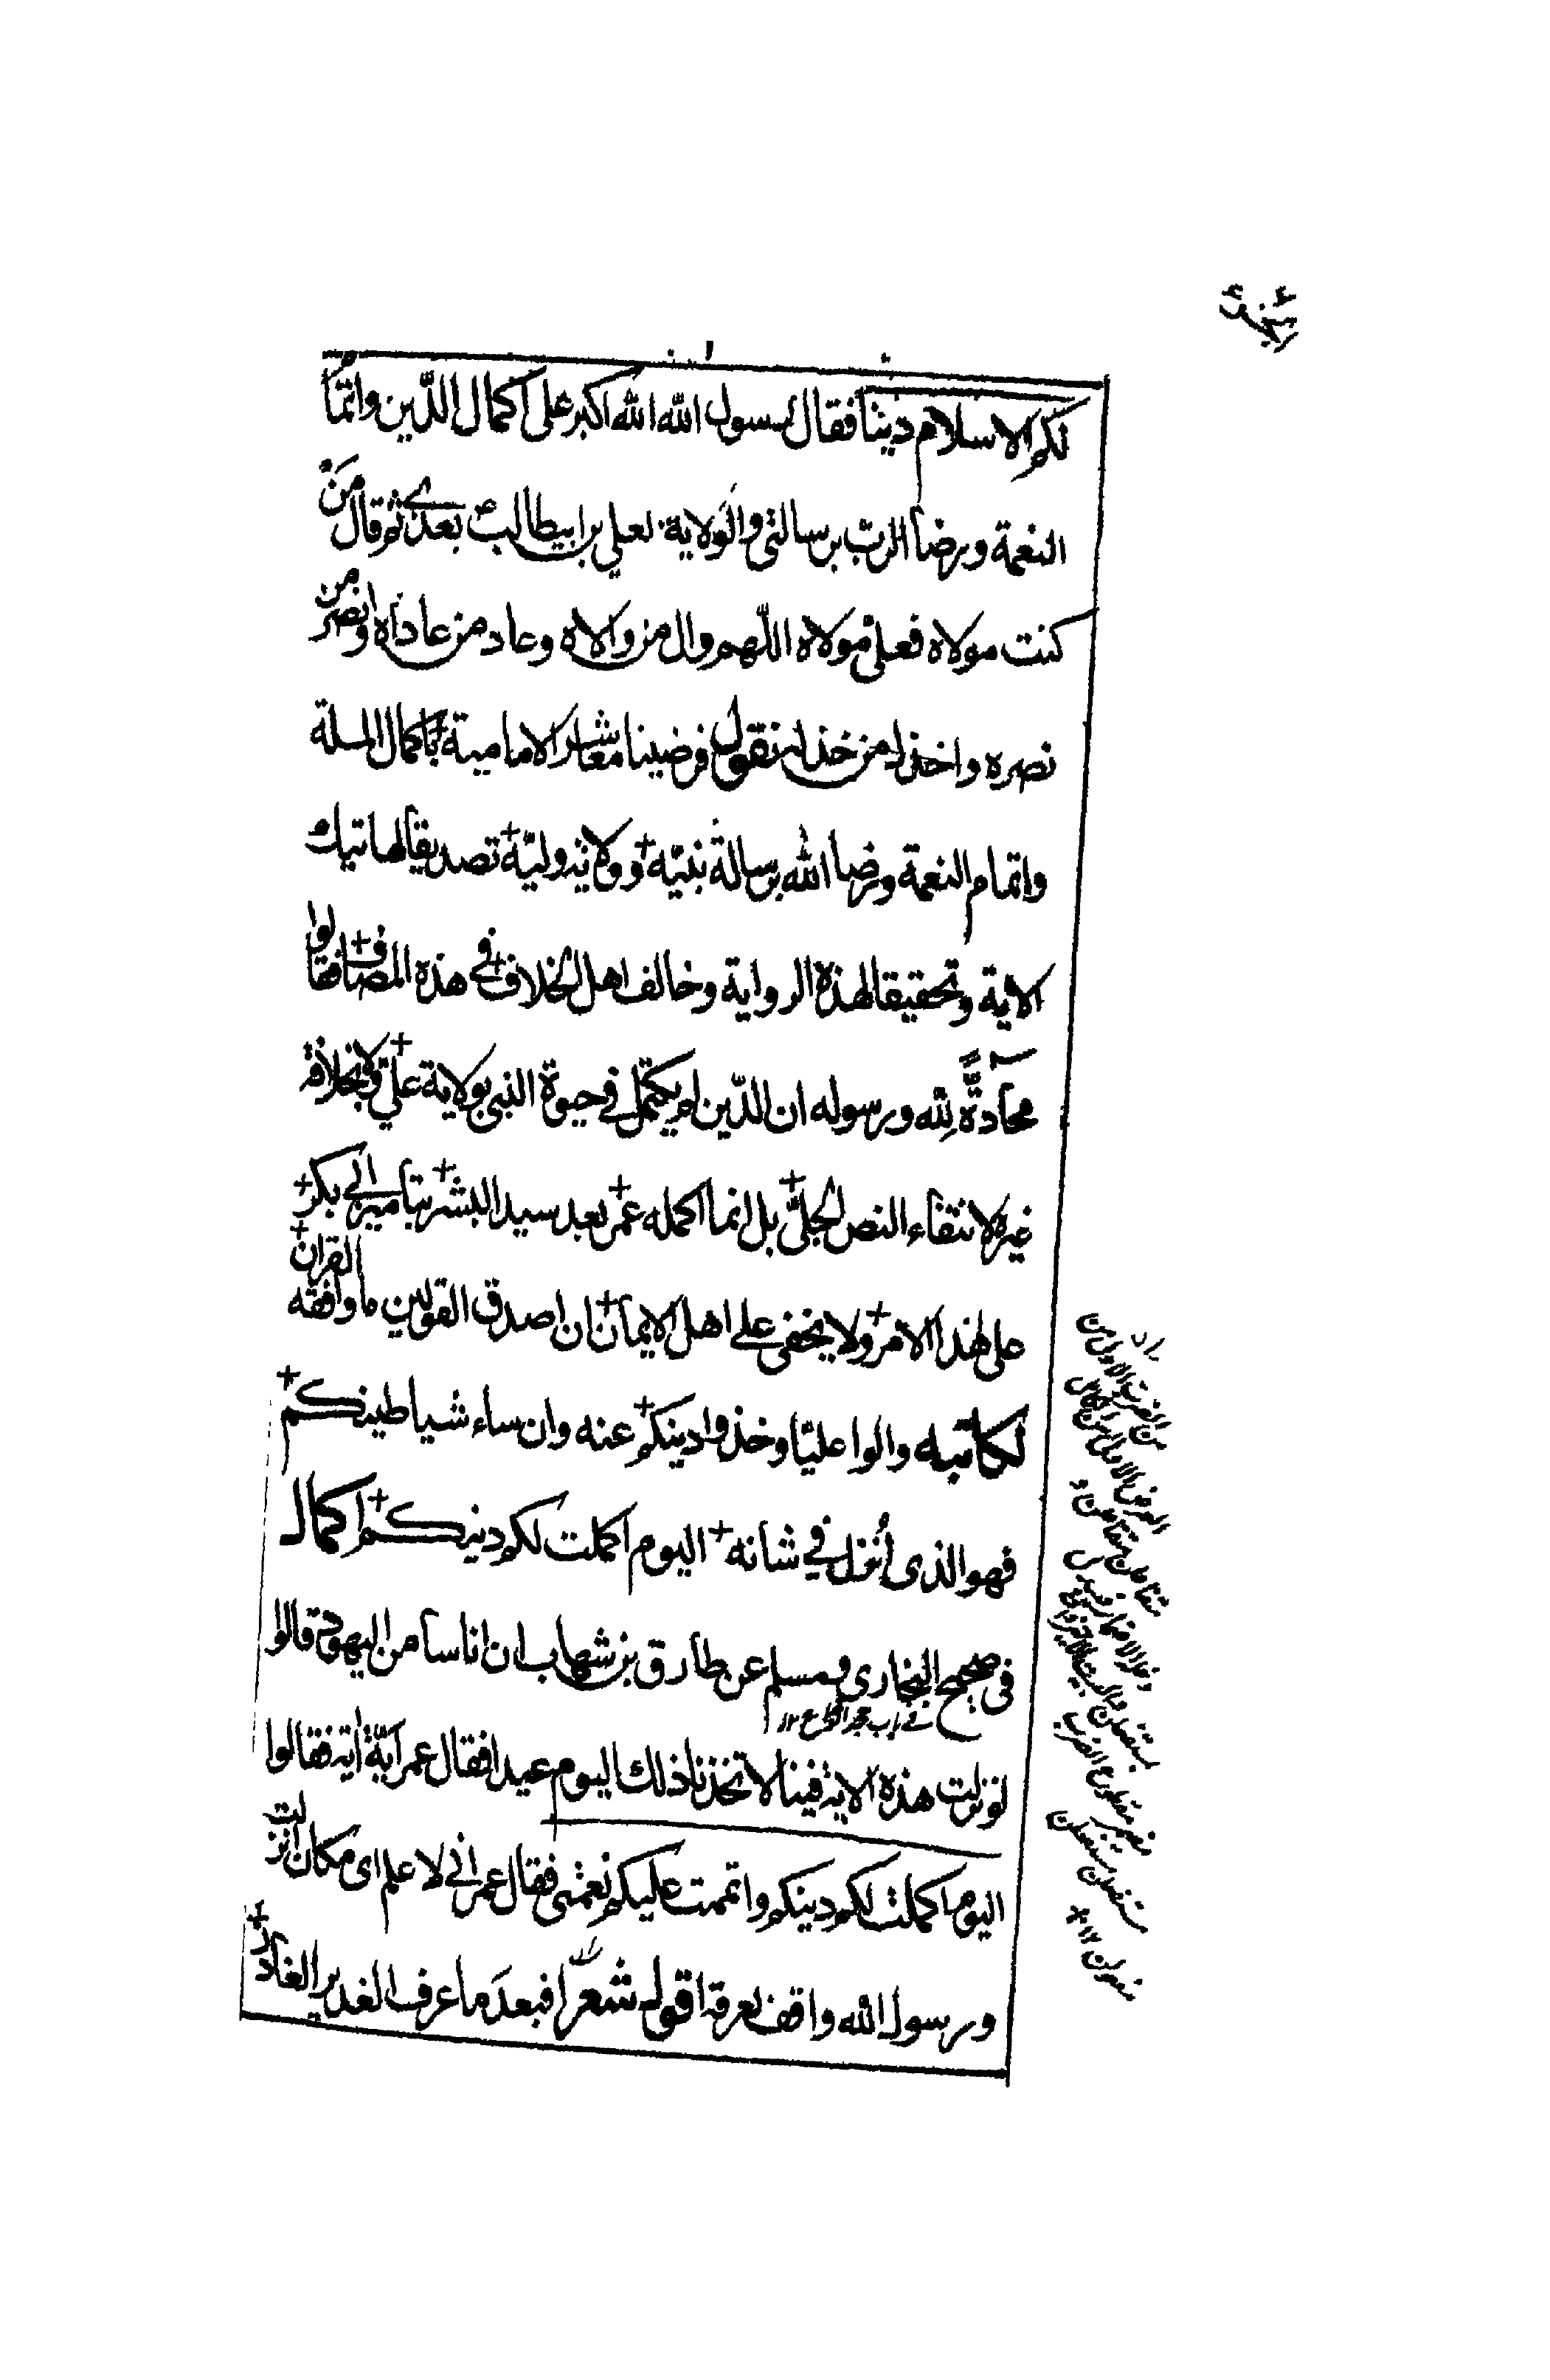 لكم الاسلام دينا فقال رسول الله الله اكبر على اكمال الدّين واتمام
النعمة ورضا الرب برسالتي والولاية لعلي بن ابيطالب بعدي ثم قال من
كنت مولاه فعليّ مولاه اللّهم وال من والاه وعاد من عاداه وانصر من
نصره واخذل من خذله نقول فرضينا معاشر الامامية باكمال الملة
واتمام النعمة ورضا الله برسالة نبيّه + وولاية وليّه + تصديقا لهاتيك
الاية وتحقيقا لهذه الرواية وخالف اهل الخلاف في هذه المصاف + فقالوا
محادّة لله ورسوله ان الدّين لم يكتمل في حيوة النبي بولاية علي + ولا بخلافة
غيره لانتفاء النص الجليّ + بل انما اكمله عمر + بعد سيد البشر + بتامير ابي بكر +
على هذا الامر + ولا يخفى على اهل الايمان + ان اصدق القولين ما وافقه القران +
لكاتبه والوا عليّا وخذوا دينكم + عنه وان ساء شياطينكم +
فهو الذى أنزل في شانه + اليوم اكملت لكم دينكم + اكمال
فى صحيح البخارى ومسلم عن طارق بن شهاب ان اناسا من اليهود قالوا
في باب حجة الوداع ١٢
لو نزلت هذه الاية فينا لاتخذنا ذلك اليوم عيدا فقال عمر ايّة اية فقالوا
اليوم اكملت لكم دينكم واتممت عليكم نعمتى فقال عمر اني لاعلم اى مكان انزلت
ورسول الله واقف بعرفة اقول شعرا فبعد ما عرف الغدير الغادر +
من الضرب الاول من
العروض الاولى من الكامل